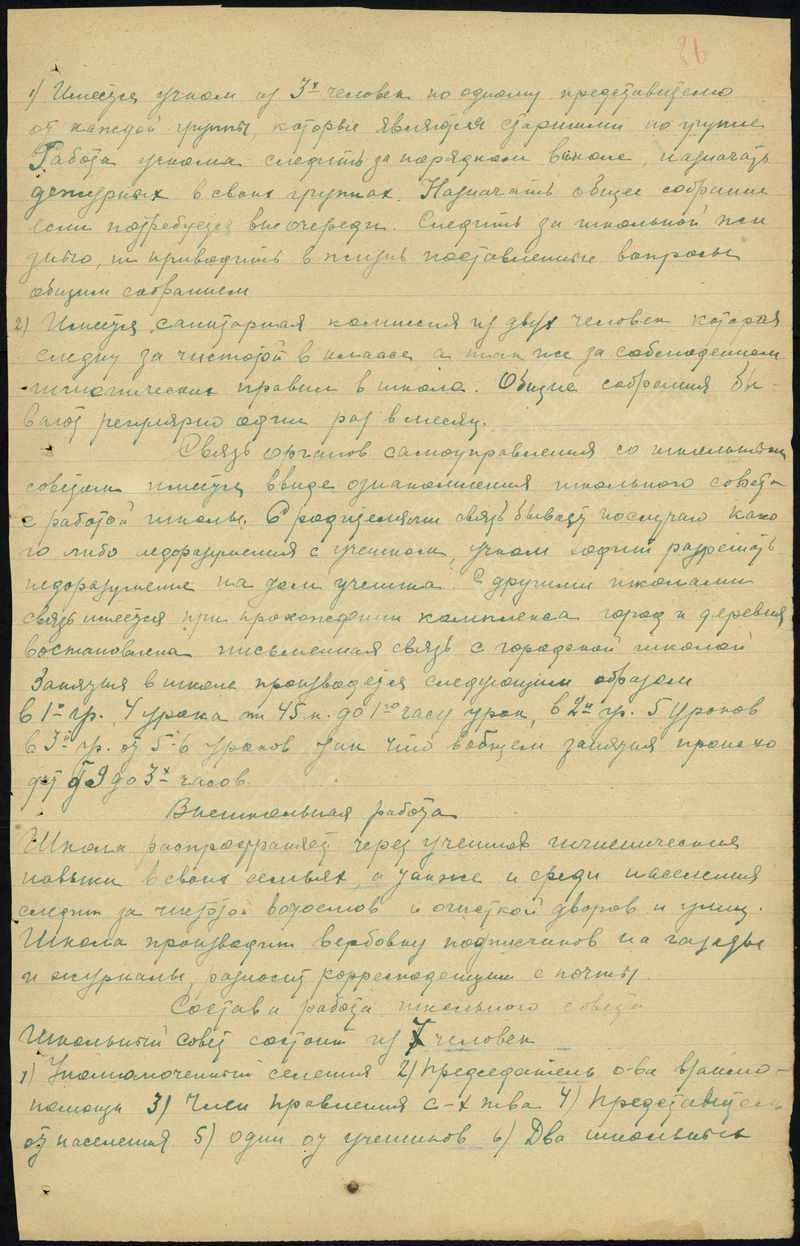 26
1) Имеется учком из 3х человек по одному представителю
от каждой группы, которые являются старшими по группе
Работа учкома следить за порядком в школе, назначать
дежурных в своих группах. Назначать общее собрание
если потребуется вне очереди. Следить за школьной жи
знью, и приводить в жизнь поставленные вопросы
общим собранием
2) Имеется санитарная комиссия из двух человек которая
следит за чистотой в классе а так же за соблюдением
гигиенических правил в школе. Общие собрания бы-
вают регулярно один раз в месяц.
Связь органов самоуправления со школьным
советом имеется ввиде ознакомления школьного совета
с работой школы. С родителями связь бывает по случаю како
го либо недоразумения с учеником, учком ходит разрешать
недоразумение на дом ученика. С другими школами
связь имеется при прохождении комплекса город и деревня
востановлена письменная связь с городской школой
Занятия в школе производятся следующим образом
в 1й гр. 4 урока по 45 м. до 1го часу урок, в 2й гр. 5 уроков
в 3й гр. от 5-6 уроков так что вобщем занятия происхо
дят от 9 до 3х часов.
Внешкольная работа
Школа распространяет через учеников гигиенические
навыки в своих семьях, а также и среди населения
следит за чистотой водоемов и очисткой дворов и улиц.
Школа производит вербовку подписчиков на газеты
и журналы, разносит корреспонденции с почты.
Состав и работа школьного совета
Школьный совет состоит из 7 человек
1) Уполномоченный селения 2) Председатель о-ва взаимо-
помощи 3) Член правления с-х т-ва 4) Представитель
от населения 5) один от учеников 6) Два школьных